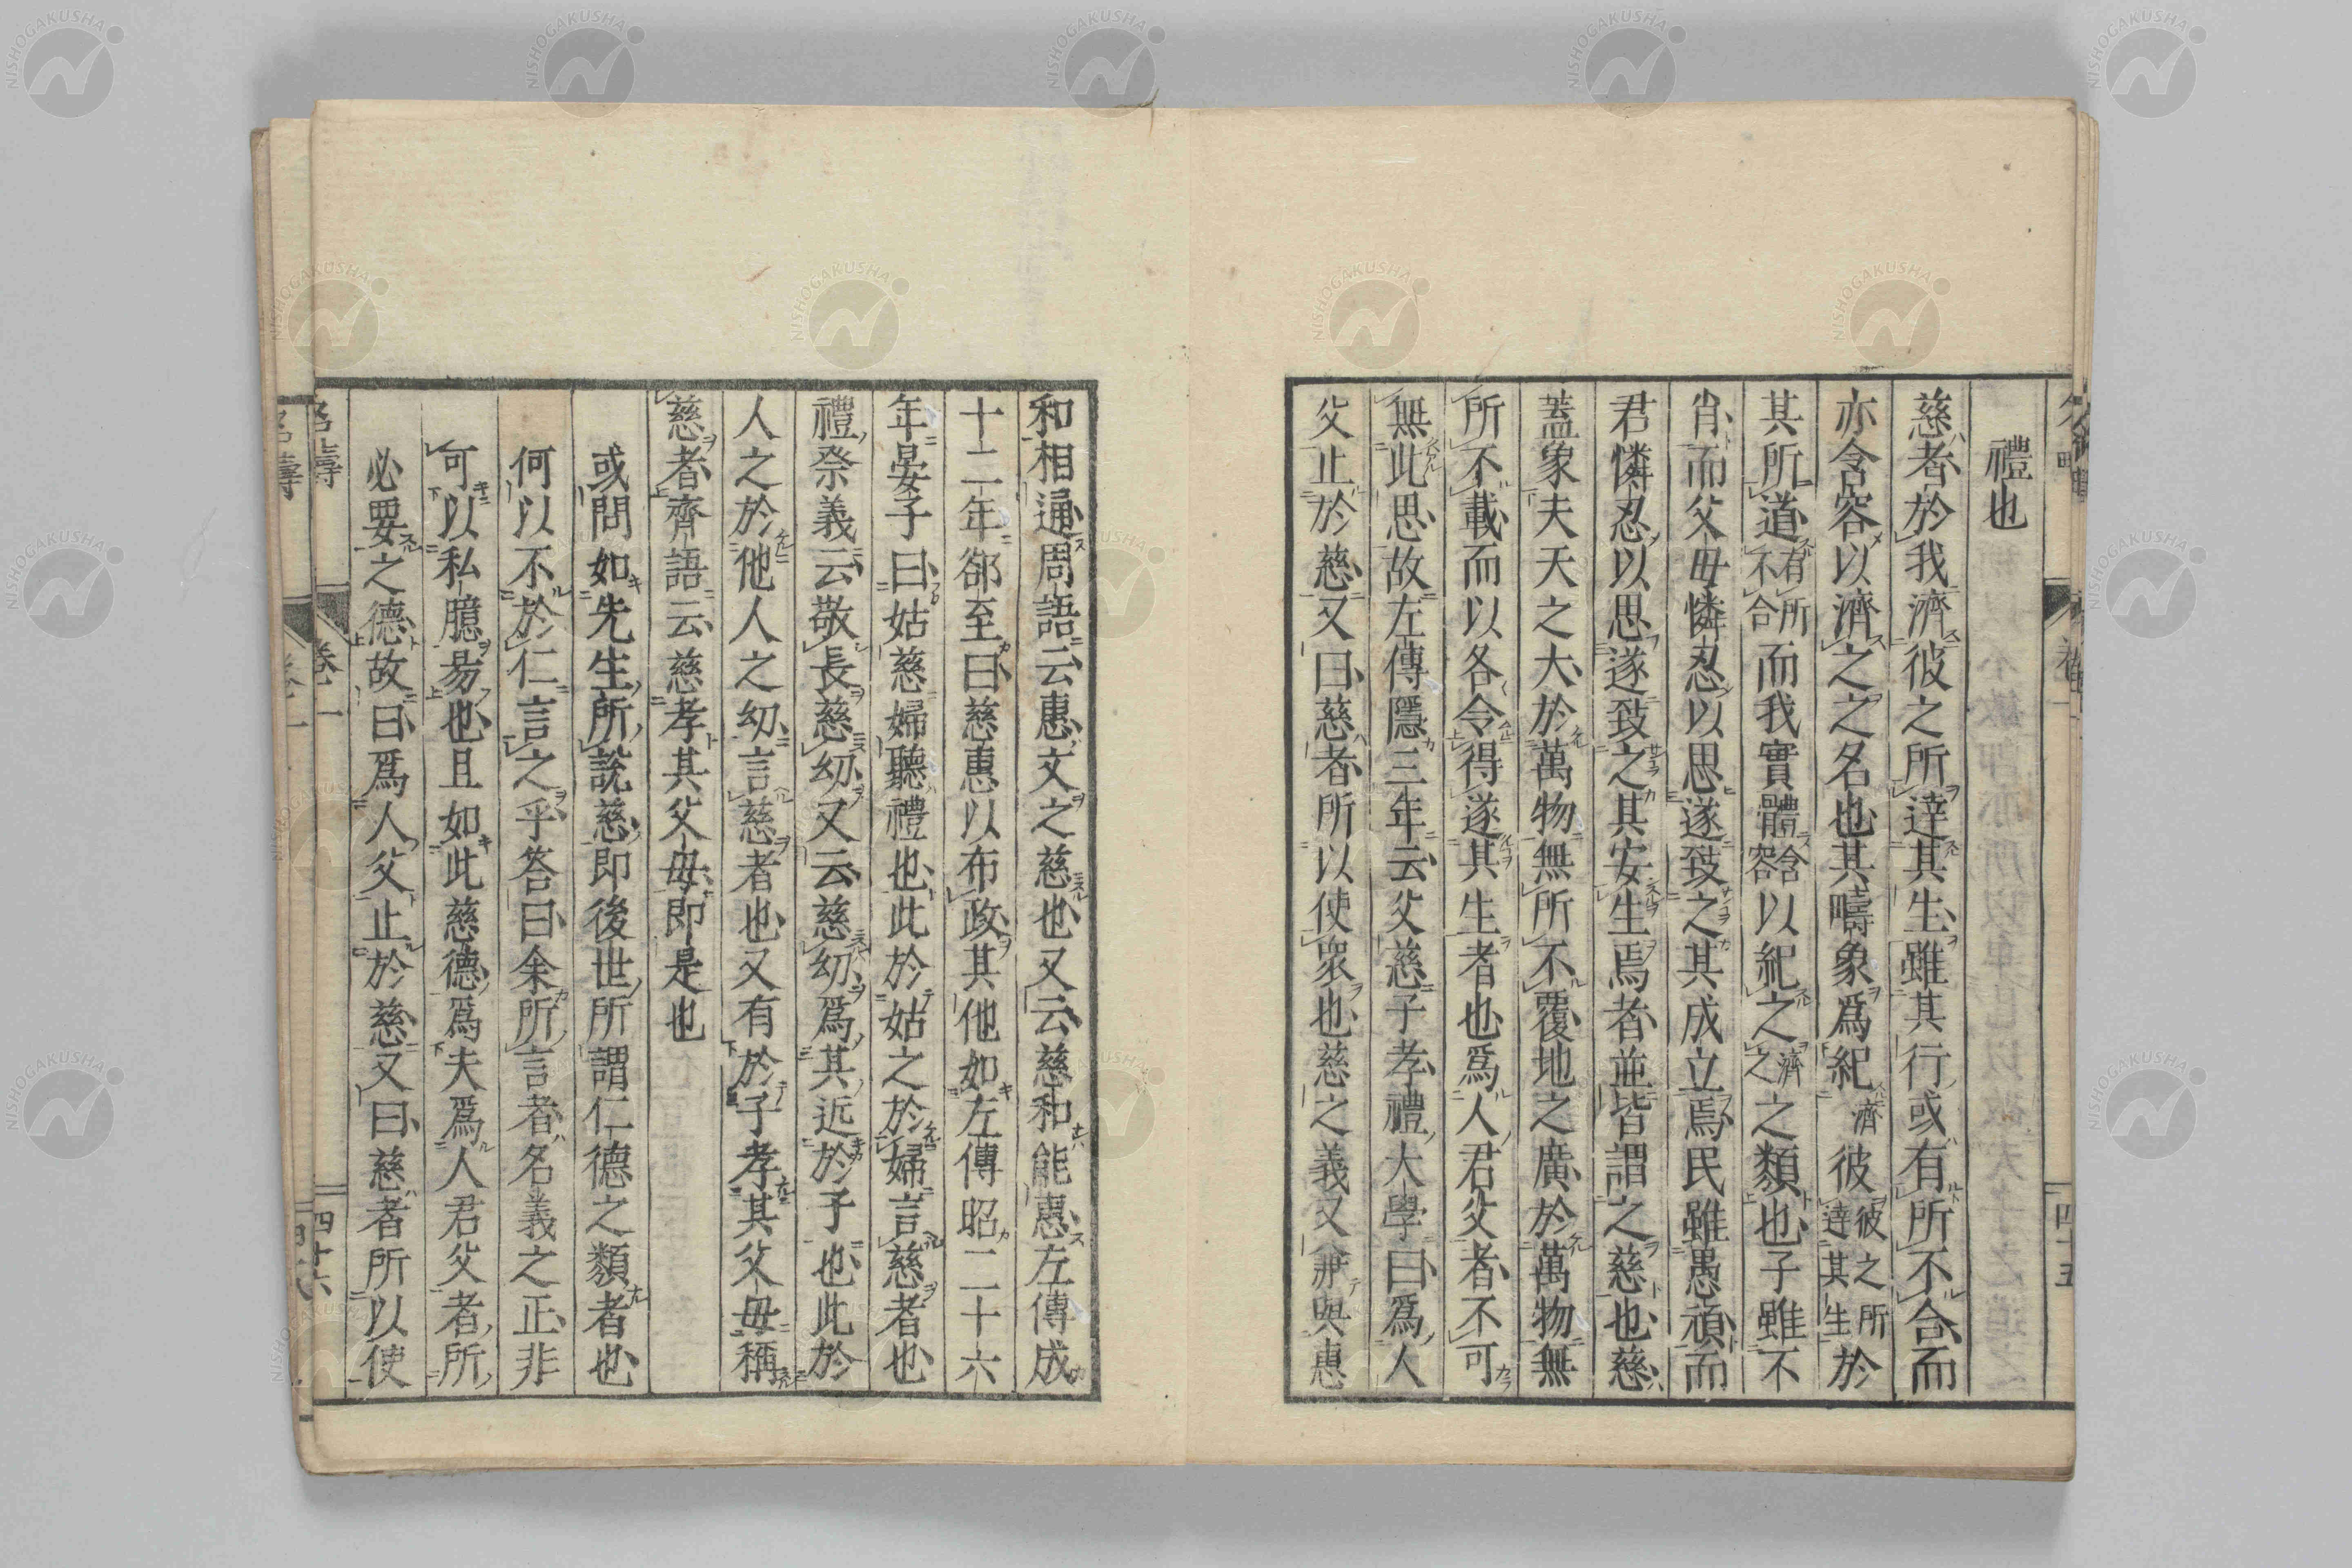 禮也
慈者於我濟彼之所達其生雖其行或有所不合而
亦含容以濟之之名也其疇象爲紀濟彼彼之所達其生於
其所道有所不合而我實體含容以紀之濟之之類也子雖不
肖而父母憐忍以思遂致之其成立焉民雖愚頑而
君憐忍以思遂致之其安生焉者並皆謂之慈也慈
蓋象夫天之大於萬物無所不覆地之廣於萬物無
所不載而以各令得遂其生者也爲人君父者不可
無此思故左傳隱三年云父慈子孝禮大學曰爲人
父止於慈又曰慈者所以使衆也慈之義又兼與惠
和相通周語云惠文之慈也又云慈和能惠左傳成
十二年郤至曰慈惠以布政其他如左傳昭二十六
年晏子曰姑慈婦聽禮也此於姑之於婦言慈者也
禮祭義云敬長慈幼又云慈幼爲其近於子也此於
人之於他人之幼言慈者也又有於子孝其父母稱
慈者齊語云慈孝其父母即是也
或問如先生所說慈即後世所謂仁德之類者也
何以不於仁言之乎答曰余所言者名義之正非
可以私臆易也且如此慈德爲夫爲人君父者所
必要之德故曰爲人父止於慈又曰慈者所以使
名疇
卷一
四十六